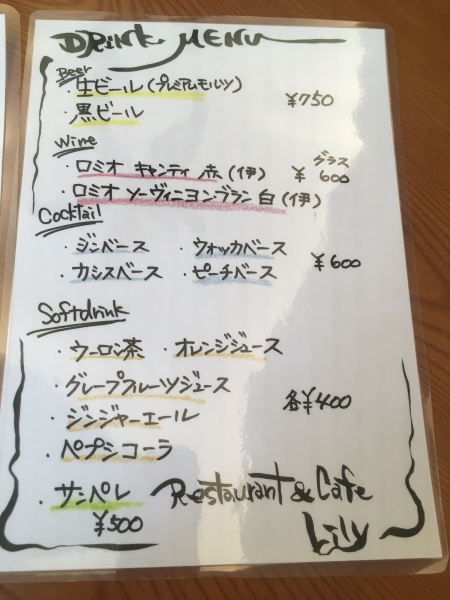 DRink MENU
Beer
・生ビール(プレミアムモルツ)
・黒ビール
¥750
Wine
グラス
・ロミオ キャンティ 赤(伊) ¥600
・ロミオ ソーヴィニヨンブラン 白(伊)
Cocktail
・ジンベース ・ウォッカベース
・カシスベース ・ピーチベース
¥600
Softdrink
・ウーロン茶 ・オレンジジュース
・グレープフルーツジュース
・ジンジャーエール
各¥400
・ペプシコーラ
・サンペレ
¥500
Restaurant & Cafe
Lily